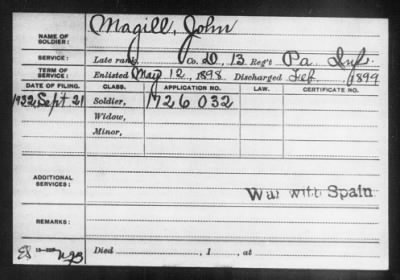 NAME OF SOLDIER: Magill, John
SERVICE: Late rank, Co. D, 13 Reg't Pa. Inf.
TERM OF SERVICE: Enlisted May 12, 1898 Discharged Feb. , 1899
DATE OF FILING. CLASS. APPLICATION NO. LAW. CERTIFICATE NO.
1932 Sept 21 Soldier, 1726032
Widow,
Minor,
ADDITIONAL SERVICES: War with Spain
REMARKS:
Died , 1 , at